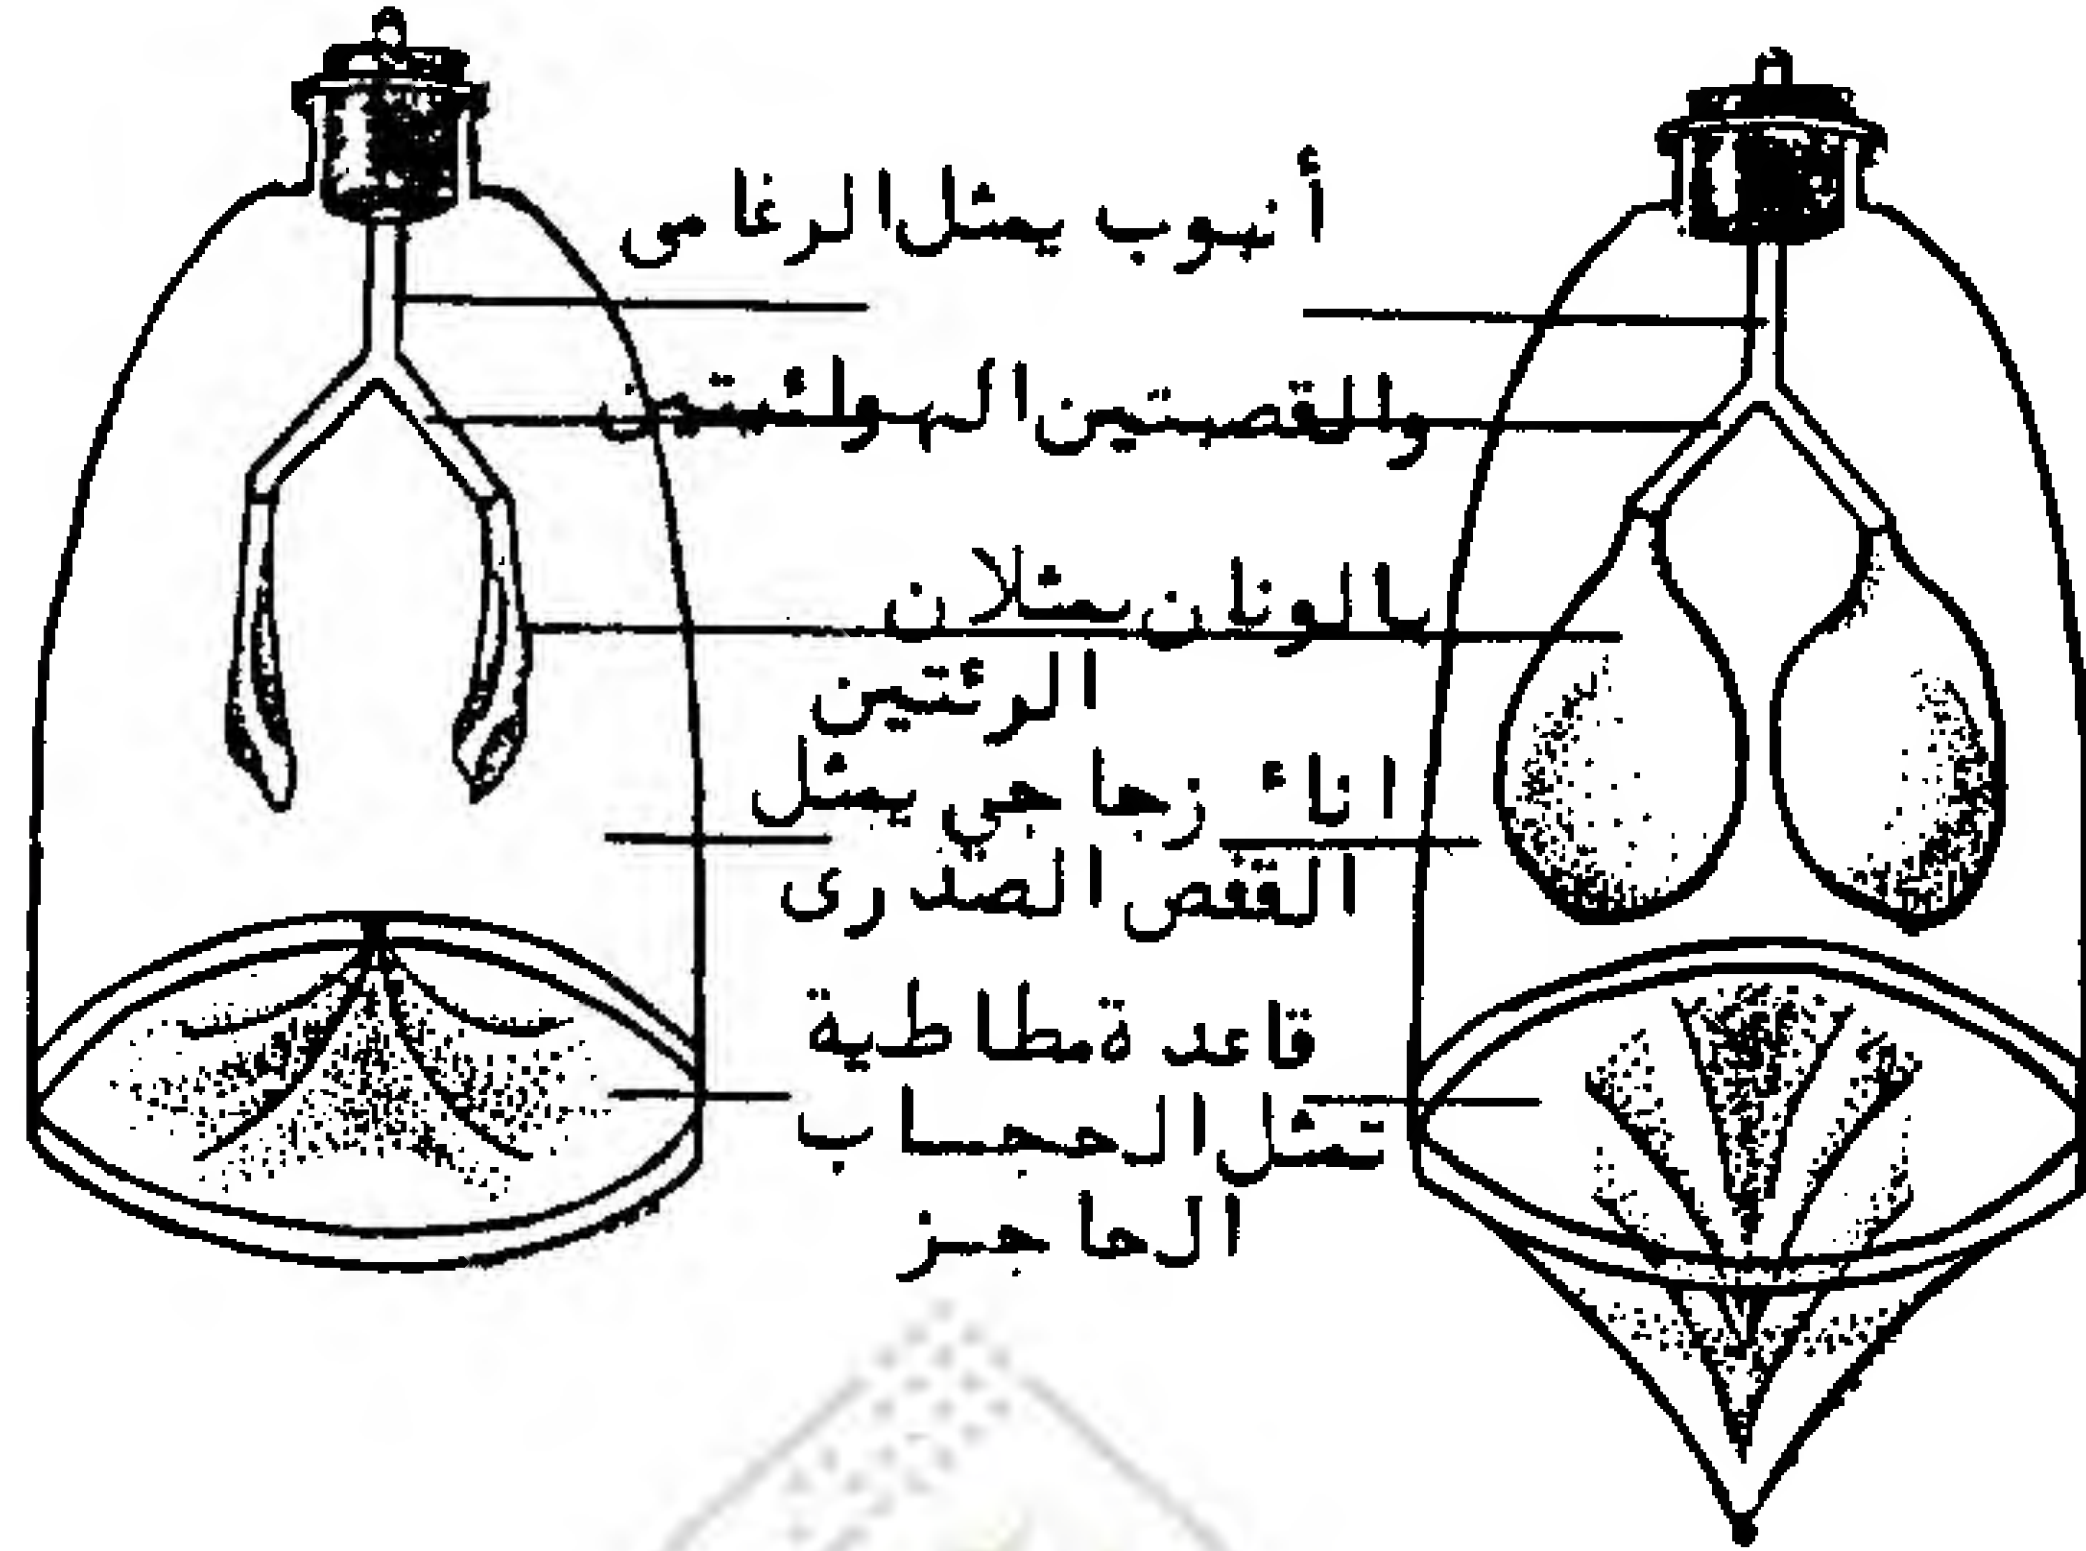 أنبوب يمثل الرغامى
والقصبتين الهوائيتين
بالونان يمثلان
الرئتين
اناء زجاجي يمثل
القفص الصدرى
قاعدة مطاطية
تمثل الحجاب
الحاجز